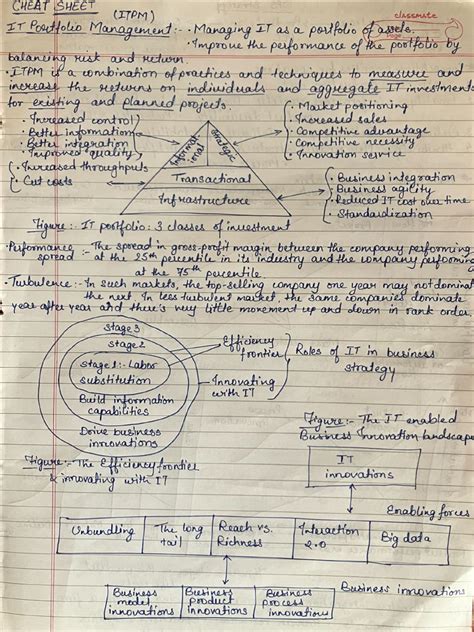 CHEAT SHEET
(ITPM)
classmate
Page
IT Portfolio Management :- · Managing IT as a portfolio of assets.
· Improve the performance of the portfolio by
balancing risk and return.
· ITPM is a combination of practices and techniques to measure and
increase the returns on individuals and aggregate IT investments
for existing and planned projects.
· Increased control
· Better information
· Better integration
· Improved quality
· Increased throughputs
· Cut costs
Informational
Strategic
Transactional
Infrastructure
· Market positioning
· Increased sales
· Competitive advantage
· Competitive necessity
· Innovation service
· Business integration
· Business agility
· Reduced IT cost over time
· Standardization
Figure : IT portfolio : 3 classes of investment
· Performance :- The spread in gross-profit margin between the company performing
spread at the 25th percentile in its industry and the company performing
at the 75th percentile.
· Turbulence :- In such markets, the top-selling company one year may not dominate
the next. In less turbulent market, the same companies dominate
year after year and there's very little movement up and down in rank order.
Stage 3
Stage 2
Stage 1 :- Labor
substitution
Build information
capabilities
Drive business
innovations
Efficiency
frontier
Innovating
with IT
Roles of IT in business
strategy
Figure :- The Efficiency frontier
& innovating with IT
Figure :- The IT enabled
Business Innovation landscape
IT
innovations
Enabling forces
Unbundling
The long
tail
Reach vs.
Richness
Interaction
2.0
Big data
Business
model
innovations
Business
product
innovations
Business
process
innovations
Business innovations